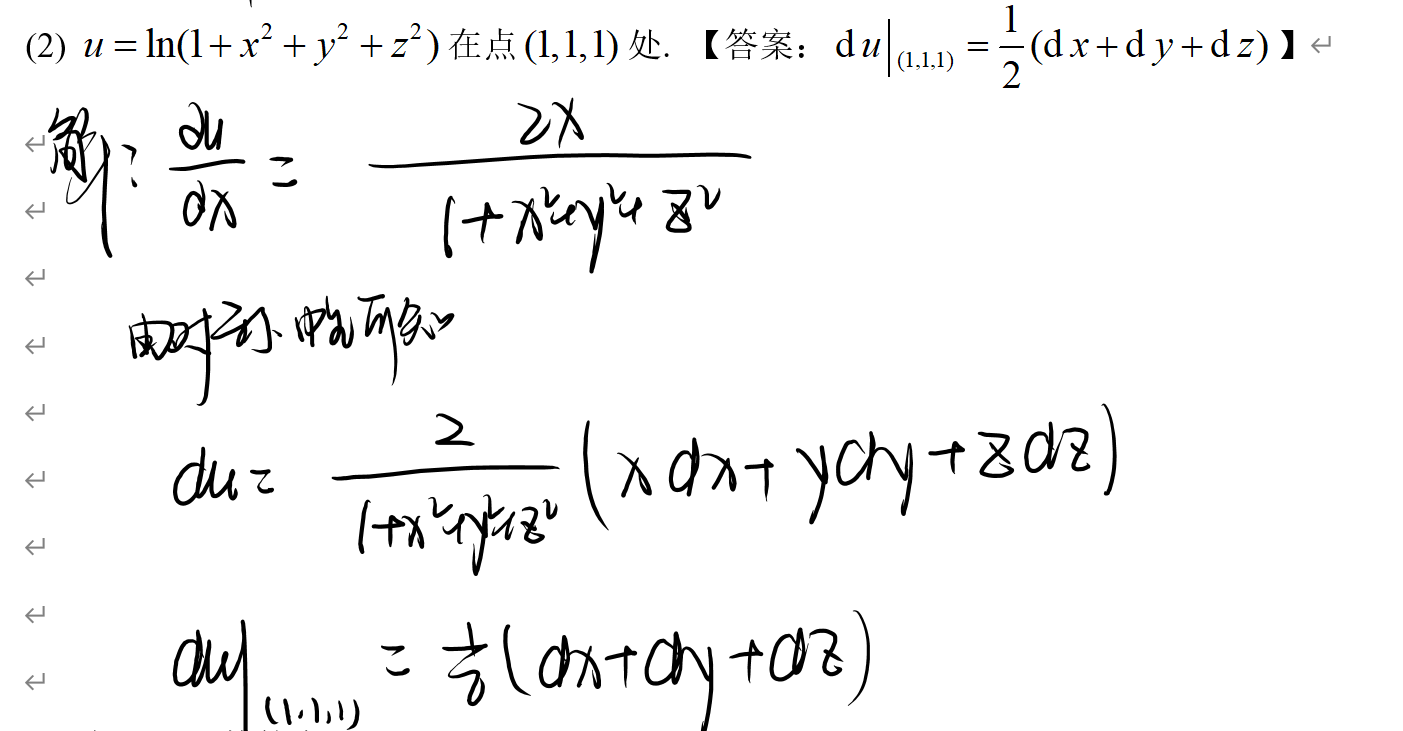 (2) u = ln(1+x²+y²+z²) 在点 (1,1,1) 处. 【答案： du|(1,1,1) = 1/2 (dx+dy+dz) 】
解: ∂u/∂x = 2x/(1+x²+y²+z²)
由对称性可知
du = 2/(1+x²+y²+z²) (xdx+ydy+zdz)
du|(1,1,1) = (dx+dy+dz)